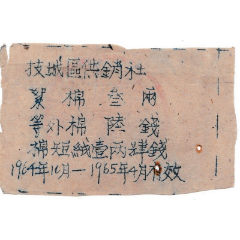 技城區供銷社
絮棉叁兩
等外棉陸錢
棉短絨壹兩肆錢
1964年11月—1965年4月有效